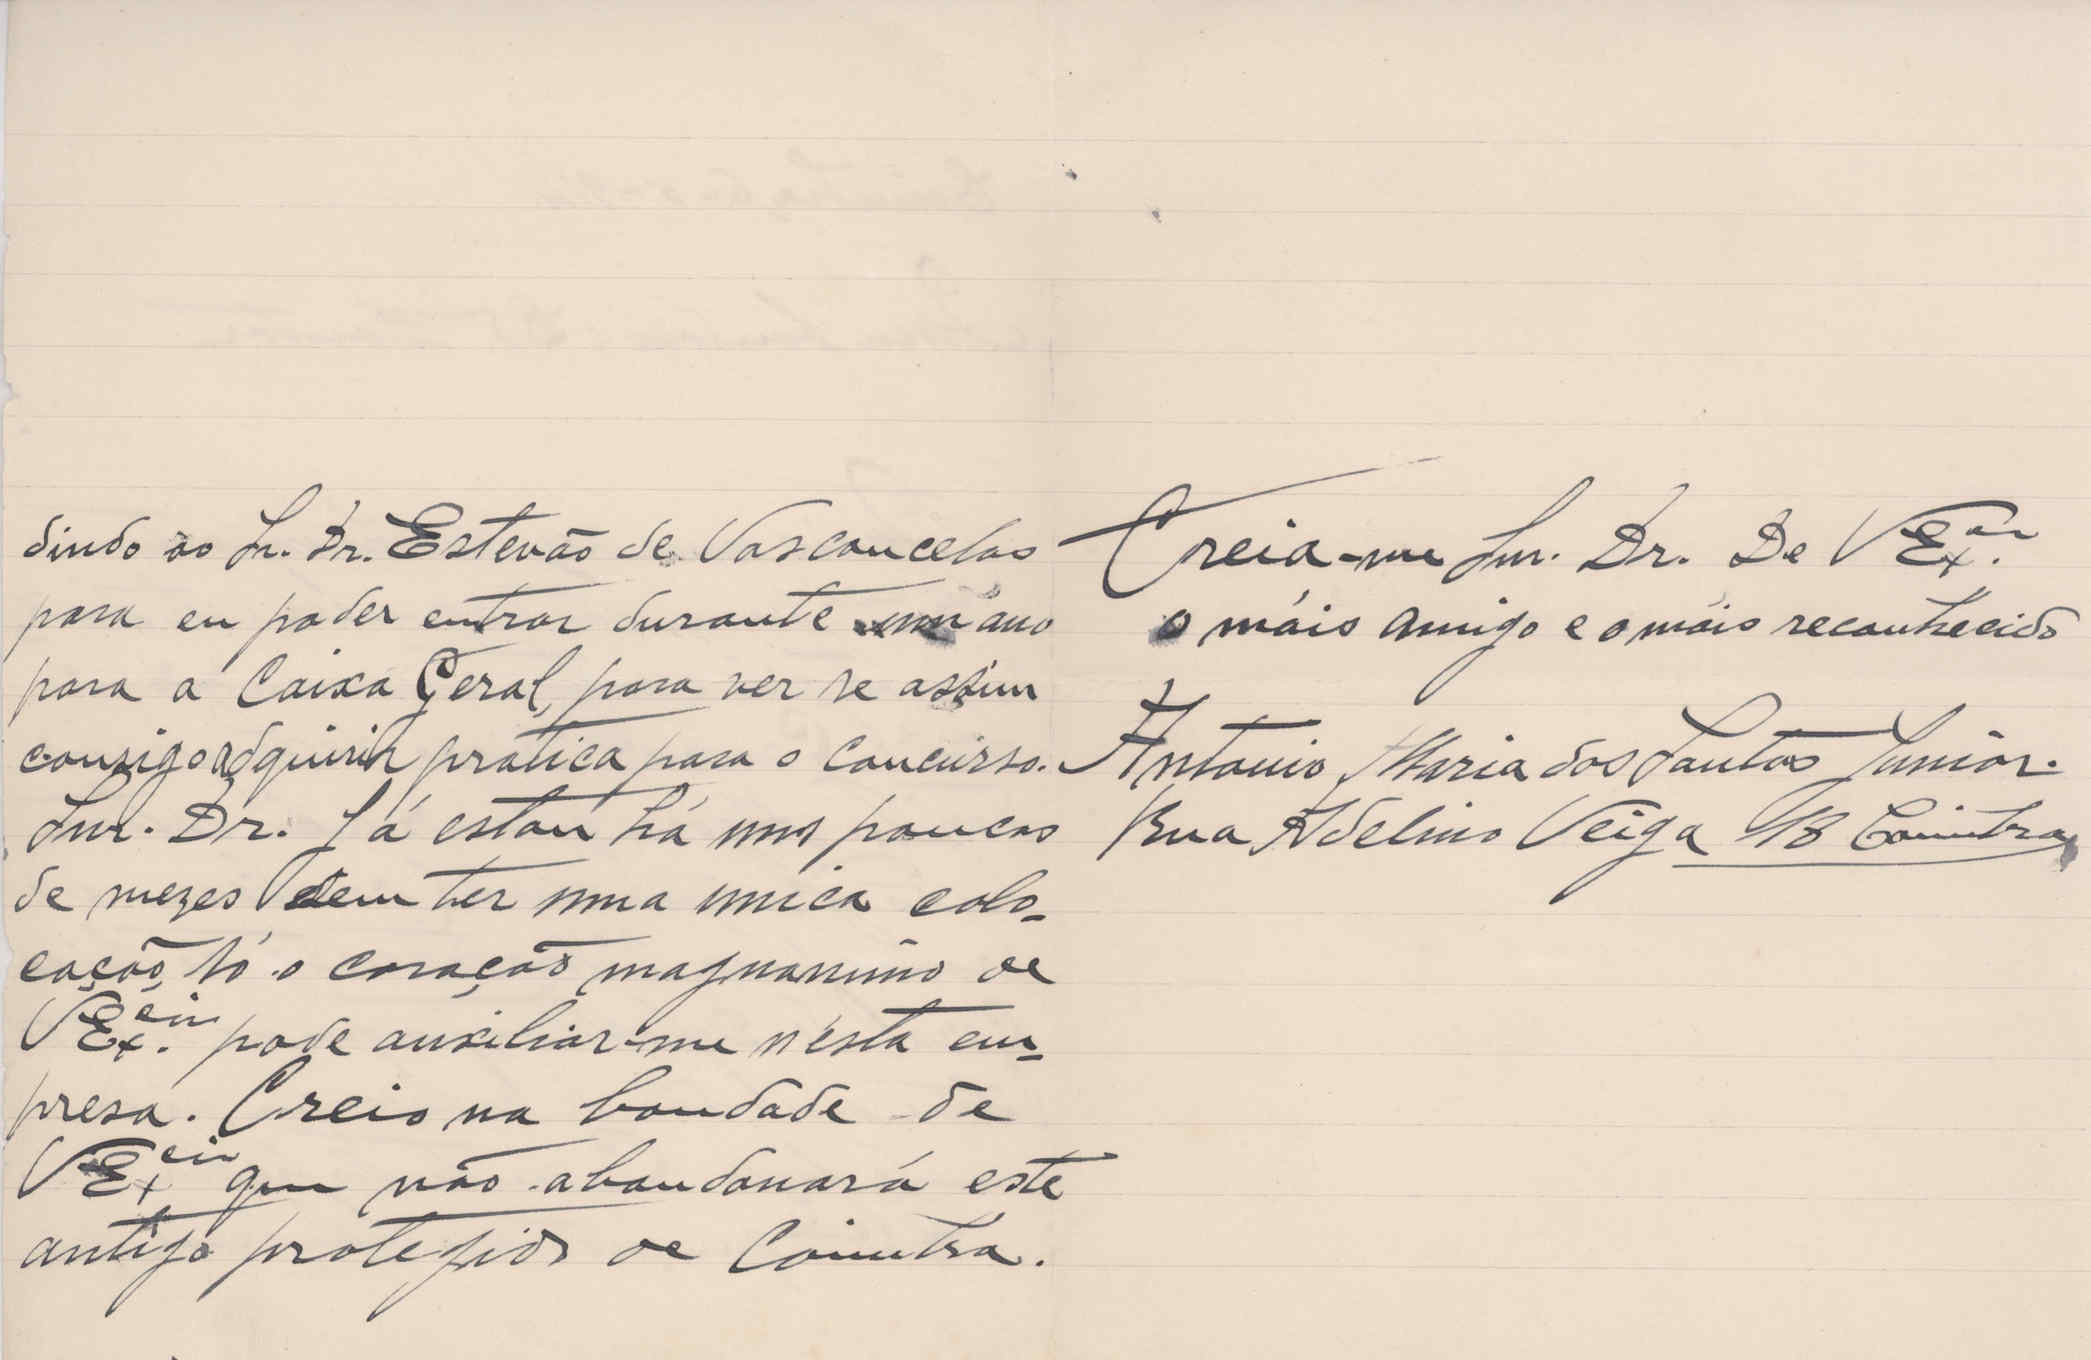 dindo ao Sr. Dr. Estevão de Vasconcelos
para eu poder entrar durante um ano
para a Caixa Geral, para ver se assim
consigo adquirir pratica para o concurso.
Snr. Dr. Já estou há uns poucos
de mezes sem ter uma unica colo-
cação, só o coração magnanimo de
VEx.cia pode auxiliar-me n'esta em-
presa. Creio na bondade de
VEx.cia que não abandonará este
antigo protegido de Coimbra.
Creia-me Snr. Dr. De VEx.cia
o máis amigo e o máis reconhecido
Antonio Maria dos Santos Junior.
Rua Adelino Veiga 18 Coimbra